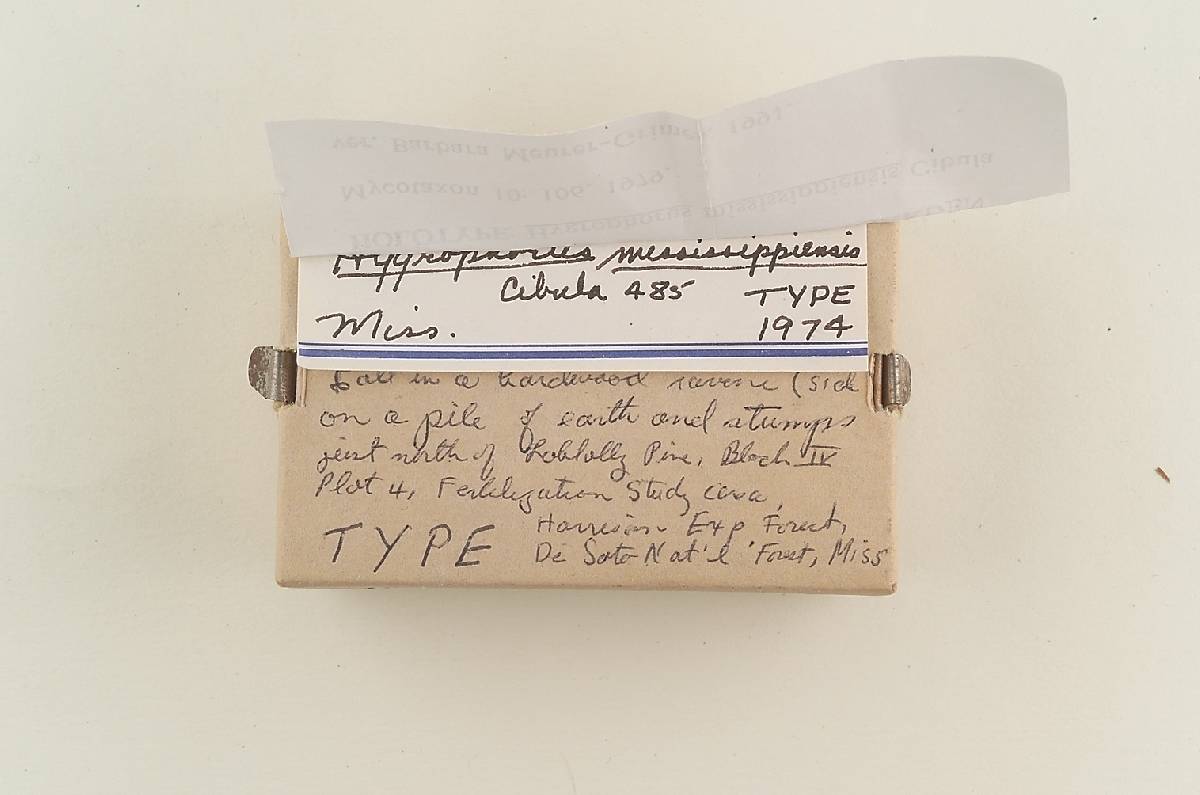 ver. Barbara Meurer-Grimes, 1991.
Mycotaxon 10: 106. 1979.
HOLOTYPE Hygrophorus mississippiensis Cibula
Hygrophorus mississippiensis
Cibula 485 TYPE
Miss. 1974
in a hardwood ravine (side
on a pile of earth and stumps
just north of Loblolly Pine, Block IV
Plot 4, Fertilization Study area,
TYPE Harrison Exp Forest,
De Soto Nat'l Forest, Miss